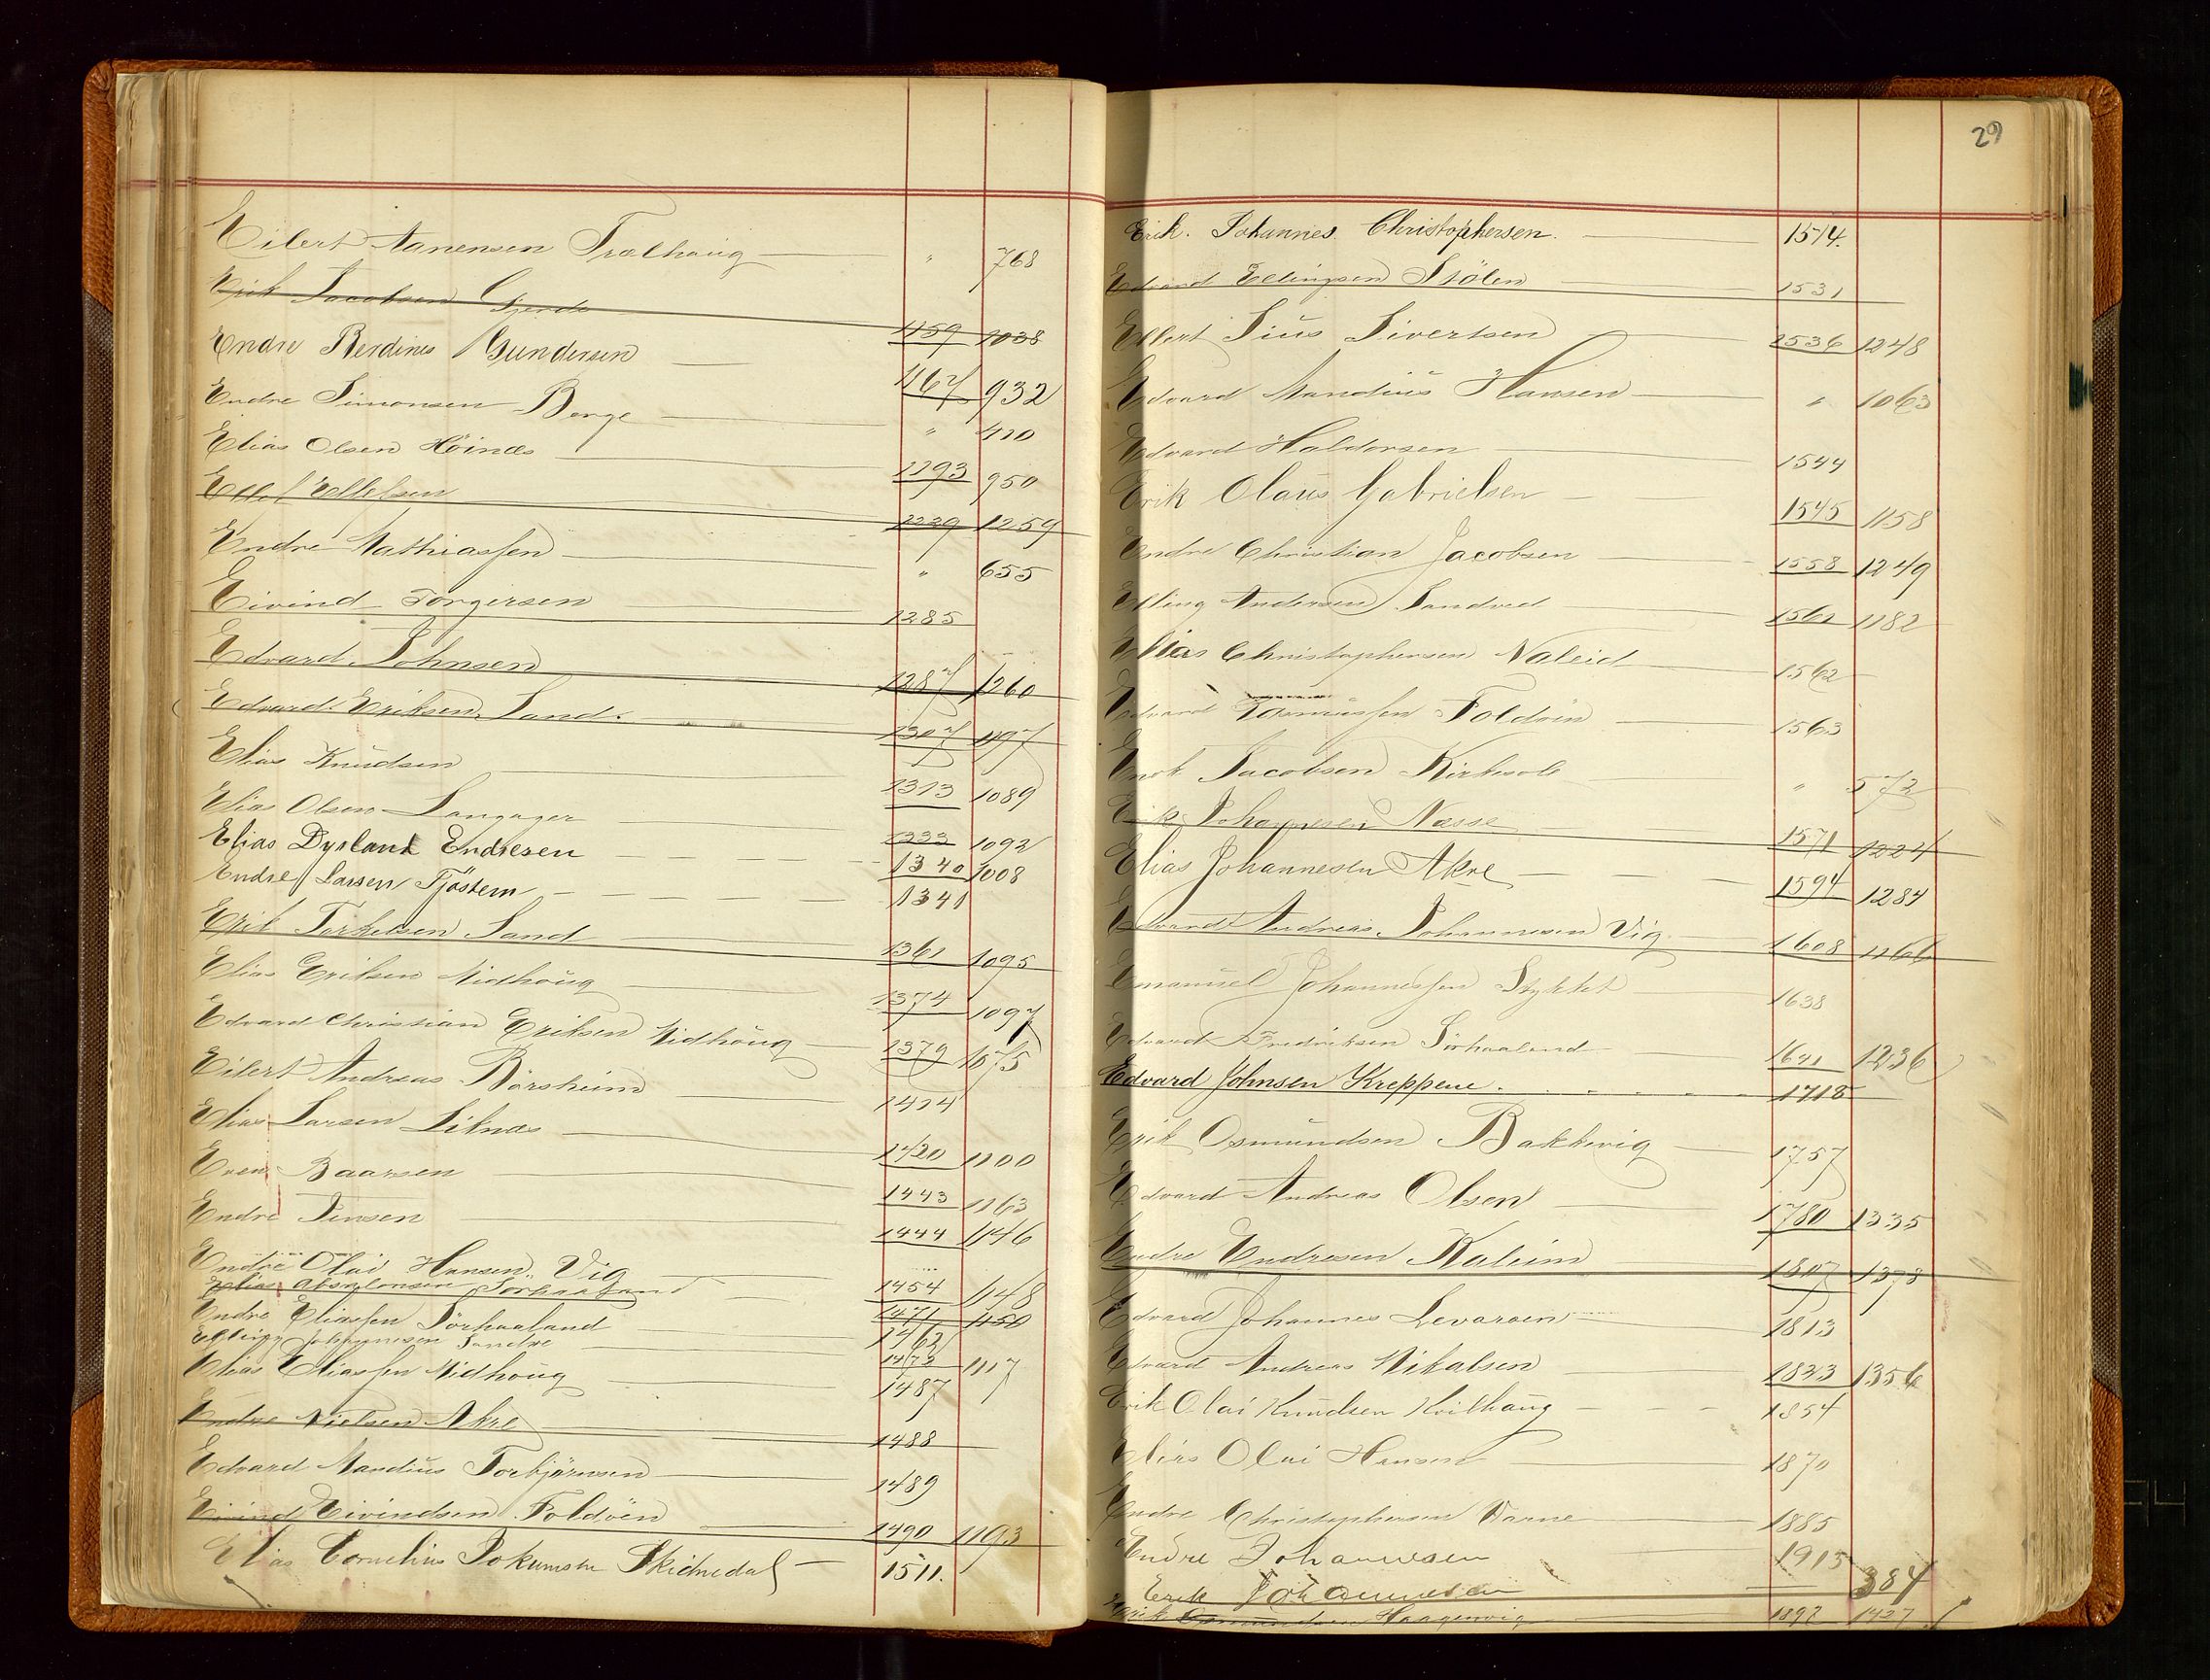 Eilert Aanensen Tralhaug — " 768
Erik Jacobsen Gjerde 1159 1038
Endre Berdines Gundersen — 1167 932
Endre Simonsen Berge — " 410
Elias Olsen Höinæs — 1193 950
Ellef Ellefsen 1229 1259
Endre Mathiassen — " 655
Eivind Torgersen 1285
Edvard Johnsen 1287 1260
Edvard Eriksen Sand. 1307 1197
Elias Knudsen — 1313 1089
Elias Olsen Langager — 1333 1092
Elias Dysland Endresen — 1340 1008
Endre Larsen Tjöstem — 1341
Erik Torkelsen Sand — 1361 1095
Elias Eriksen Midhöug — 1374 1097
Edvard Christian Eriksen Midhöug — 1379 1075
Eilert Andreas Börsheim — 1414
Elias Larsen Liknæs — 1420 1100
Even Baarsen — 1443 1163
Endre Jensen — 1444 1146
Endre Olai Hansen Vig — 1454 1148
Elias Absalonsen Sörhaaland — 1471 1150
Endre Eliassen Sörhaaland — 1462
Elling Johannesen Sandve — 1473 1117
Elias Eliassen Midhöug — 1487
Endre Nielsen Akre — 1488
Edvard Mandius Torbjörnsen — 1489
Eivind Eivindsen Foldöen — 1490 1193
Elias Cornelius Skidnedal — 1511.
29
Erik. Johannes Christophersen. — 1514.
Edvard Ellingsen Stölen — 1531
Ellert Sius Sivertsen — 1536 1248
Edvard Mandius Hansen — " 1063
Edvard Haldorsen — 1544
Erik Olaus Gabrielsen — 1545 1158
Endre Christian Jacobsen — 1558 1249
Elling Andersen Sandved — 1561 1182
Elias Christophersen Valeid — 1562
Edvard Rasmussen Foldöin — 1563
Enok Jacobsen Kirkvole — " 572
Erik Johannesen Næsse — 1571 1224
Elias Johannesen Akre — 1594 1284
Edvard Andreas Johannesen Vig — 1608 1166
Emanuel Johannessen Stykket — 1638
Edvard Fredriksen Sörhaaland — 1641 1236
Edvard Johnsen Kreppene. 1718
Erik Osmundsen Bakkevig — 1757
Edvard Andreas Olsen — 1780 1335
Endre Endresen Kaleim — 1807 1378
Edvard Johannes Levarsen 1813
Edvard Andreas Mikalsen — 1833 1356
Erik Olai Knudsen Kvilhaug — 1854
Elias Olai Hansen — 1870
Endre Christophersen Varne — 1885
Endre Johannesen 1915
Erik Johannesen — 384
Erik Osmundsen Haagenvig 1892 1427